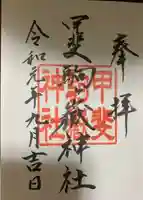 奉拝
甲斐駒嶽神社
甲斐
駒嶽
神社
令和元年九月吉日